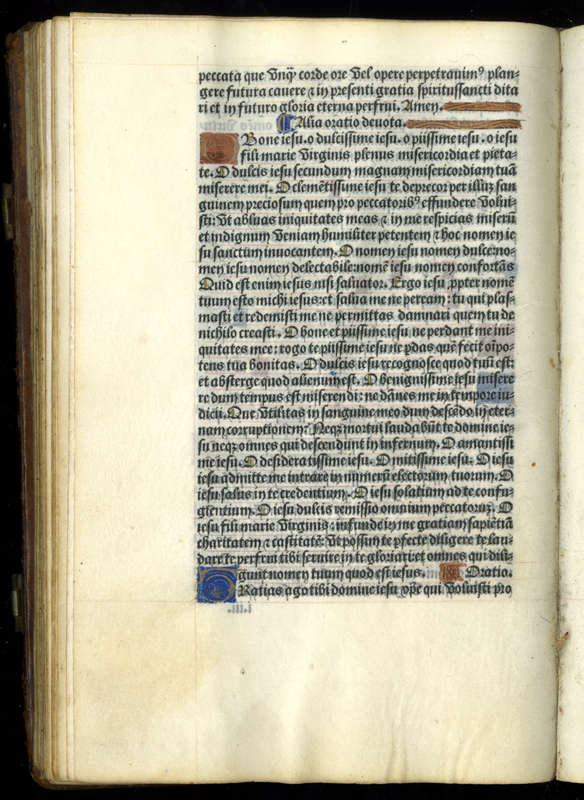 peccata que vnq̃ corde ore vel opere perpetrauimꝰ plan-
gere futura cauere ⁊ in presenti gratia spiritussancti dita
ri et in futuro gloria eterna perfrui. Amen.
Alia oratio deuota.
O Bone iesu. o dulcissime iesu. o piissime iesu. o iesu
fili marie virginis plenus misericordia et pieta-
te. O dulcis iesu secundum magnam misericordiam tuã
miserere mei. O clemẽtissime iesu te deprecor per illuʒ san
guinem preciosum quem pro peccatoribꝰ effundere volui-
sti: vt abluas iniquitates meas ⁊ in me respicias miserũ
et indignum veniam humiliter petentem ⁊ hoc nomen ie
su sanctum inuocantem. O nomen iesu nomen dulce: no-
men iesu nomen delectabile: nomẽ iesu nomen confortãs
Quid est enim iesus nisi saluator. Ergo iesu ꝓpter nomẽ
tuum esto michi iesus: et salua me ne peream: tu qui plas-
masti et redemisti me ne permittas damnari quem tu de
nichilo creasti. O bone et piissime iesu ne perdant me ini-
quitates mee: rogo te piissime iesu ne ꝑdas quẽ fecit oĩpo-
tens tua bonitas. O dulcis iesu recognosce quod tuũ est:
et absterge quod alienum est. O benignissime iesu misere
re dum tempus est miserendi: ne dãnes me in tempore iu-
dicii. Que vtilitas in sanguine meo dum descẽdo in eter-
nam corruptionem? Neqʒ mortui laudabũt te domine ie-
su neqʒ omnes qui descendunt in infernum. O amantissi
me iesu. O desideratissime iesu. O mitissime iesu. O iesu
iesu admitte me intrare in numerũ electorum tuorum. O
iesu salus in te credentium. O iesu solatium ad te confu-
gientium. O iesu dulcis remissio omnium peccatorũʒ. O
iesu fili marie virginis: infunde in me gratiam sapiẽtiã
charitatem ⁊ castitatẽ: vt possum te ꝑfecte diligere te lau-
dare te perfrui tibi seruire in te gloriari: et omnes qui dili-
gunt nomen tuum quod est iesus. Oratio.
GRatias ago tibi domine iesu xp̃e qui voluisti pro